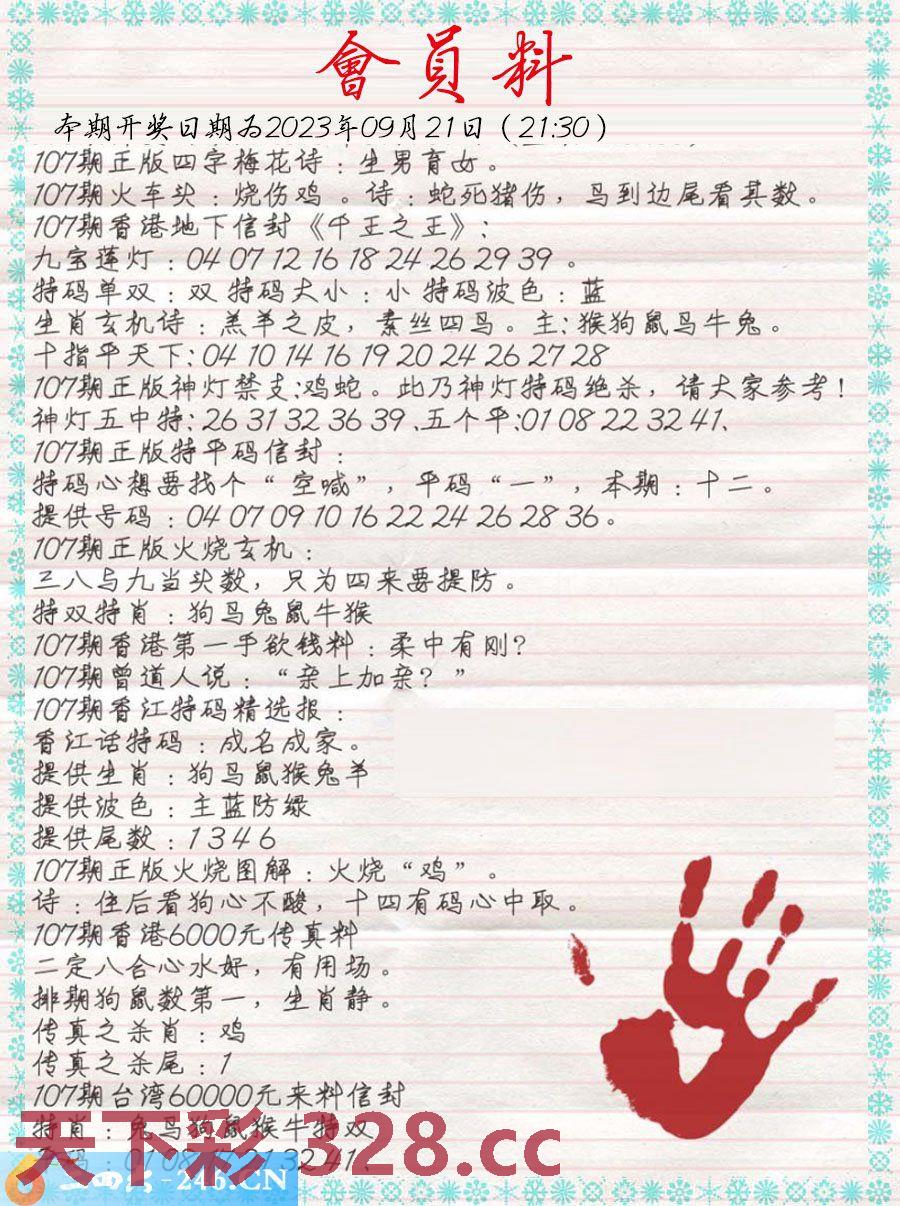 會員料
本期开奖日期为2023年09月21日（21:30）
107期正版四字梅花诗：生男育女。
107期火车头：烧伤鸡 。诗：蛇死猪伤，鸟到边尾看其数。
107期香港地下信封《千王之王》：
九宝莲灯：04 07 12 16 18 24 26 29 39 。
特码单双：双 特码大小：小 特码波色：蓝
生肖玄机诗：羔羊之皮，素丝四鸟。主：猴狗鼠鸟牛兔。
十指平天下：04 10 14 16 19 20 24 26 27 28
107期正版神灯禁支:鸡蛇。此乃神灯特码绝杀，请大家参考！
神灯五中特：26 31 32 36 39 、五个平:01 08 22 32 41、
107期正版特平码信封：
特码心想要找个“ 空喊”，平码“一”，本期：十二。
提供号码：04 07 09 10 16 22 24 26 28 36。
107期正版火烧玄机：
三八与九当头数，只为四来要提防。
特双特肖：狗鸟兔鼠牛猴
107期香港第一手欲钱料：柔中有刚？
107期曾道人说：“亲上加亲？”
107期香江特码精选报：
香江话特码：成名成家。
提供生肖：狗鸟鼠猴兔羊
提供波色：主蓝防绿
提供尾数：1 3 4 6
107期正版火烧图解：火烧“鸡”。
诗：住后看狗心不酸，十四有码心中取。
107期香港6000元传真料
二定八合心水好，有用场。
排期狗鼠数第一，生肖静。
传真之杀肖：鸡
传真之杀尾：1
107期台湾60000元来料信封
特肖：兔鸟狗鼠猴牛特双
01 08 32 41、
天下彩 328.cc
二四六-246.CN